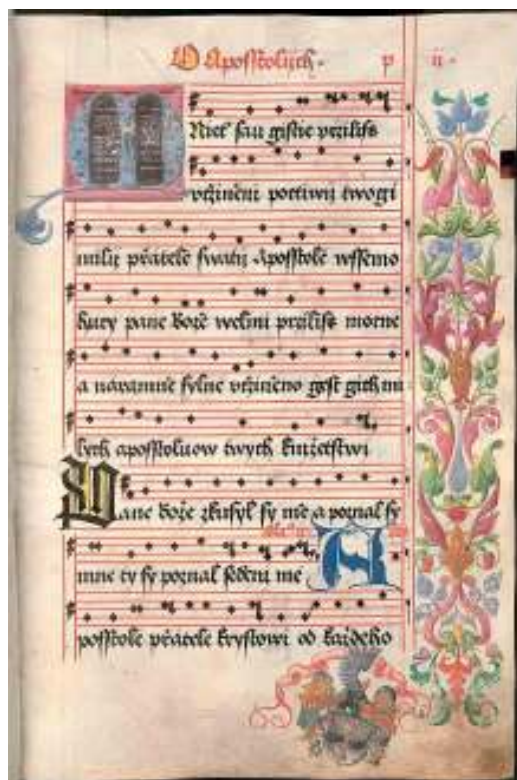 O Aposstolijch.
Nietˇ sau gistie przilifs
vtzineni poctiwij twogi
milij přatele swatij Aposstole wssemo
huty pane Bože welmi przilifs mocne
a náramnie sylne vtzineno gest gich mi
lych aposstoluow twych knižetstwi
Pane Bože zkusyl sy mě a poznal sy
mne ty sy poznal seděni mé A
posstole přatele krystowi od každeho